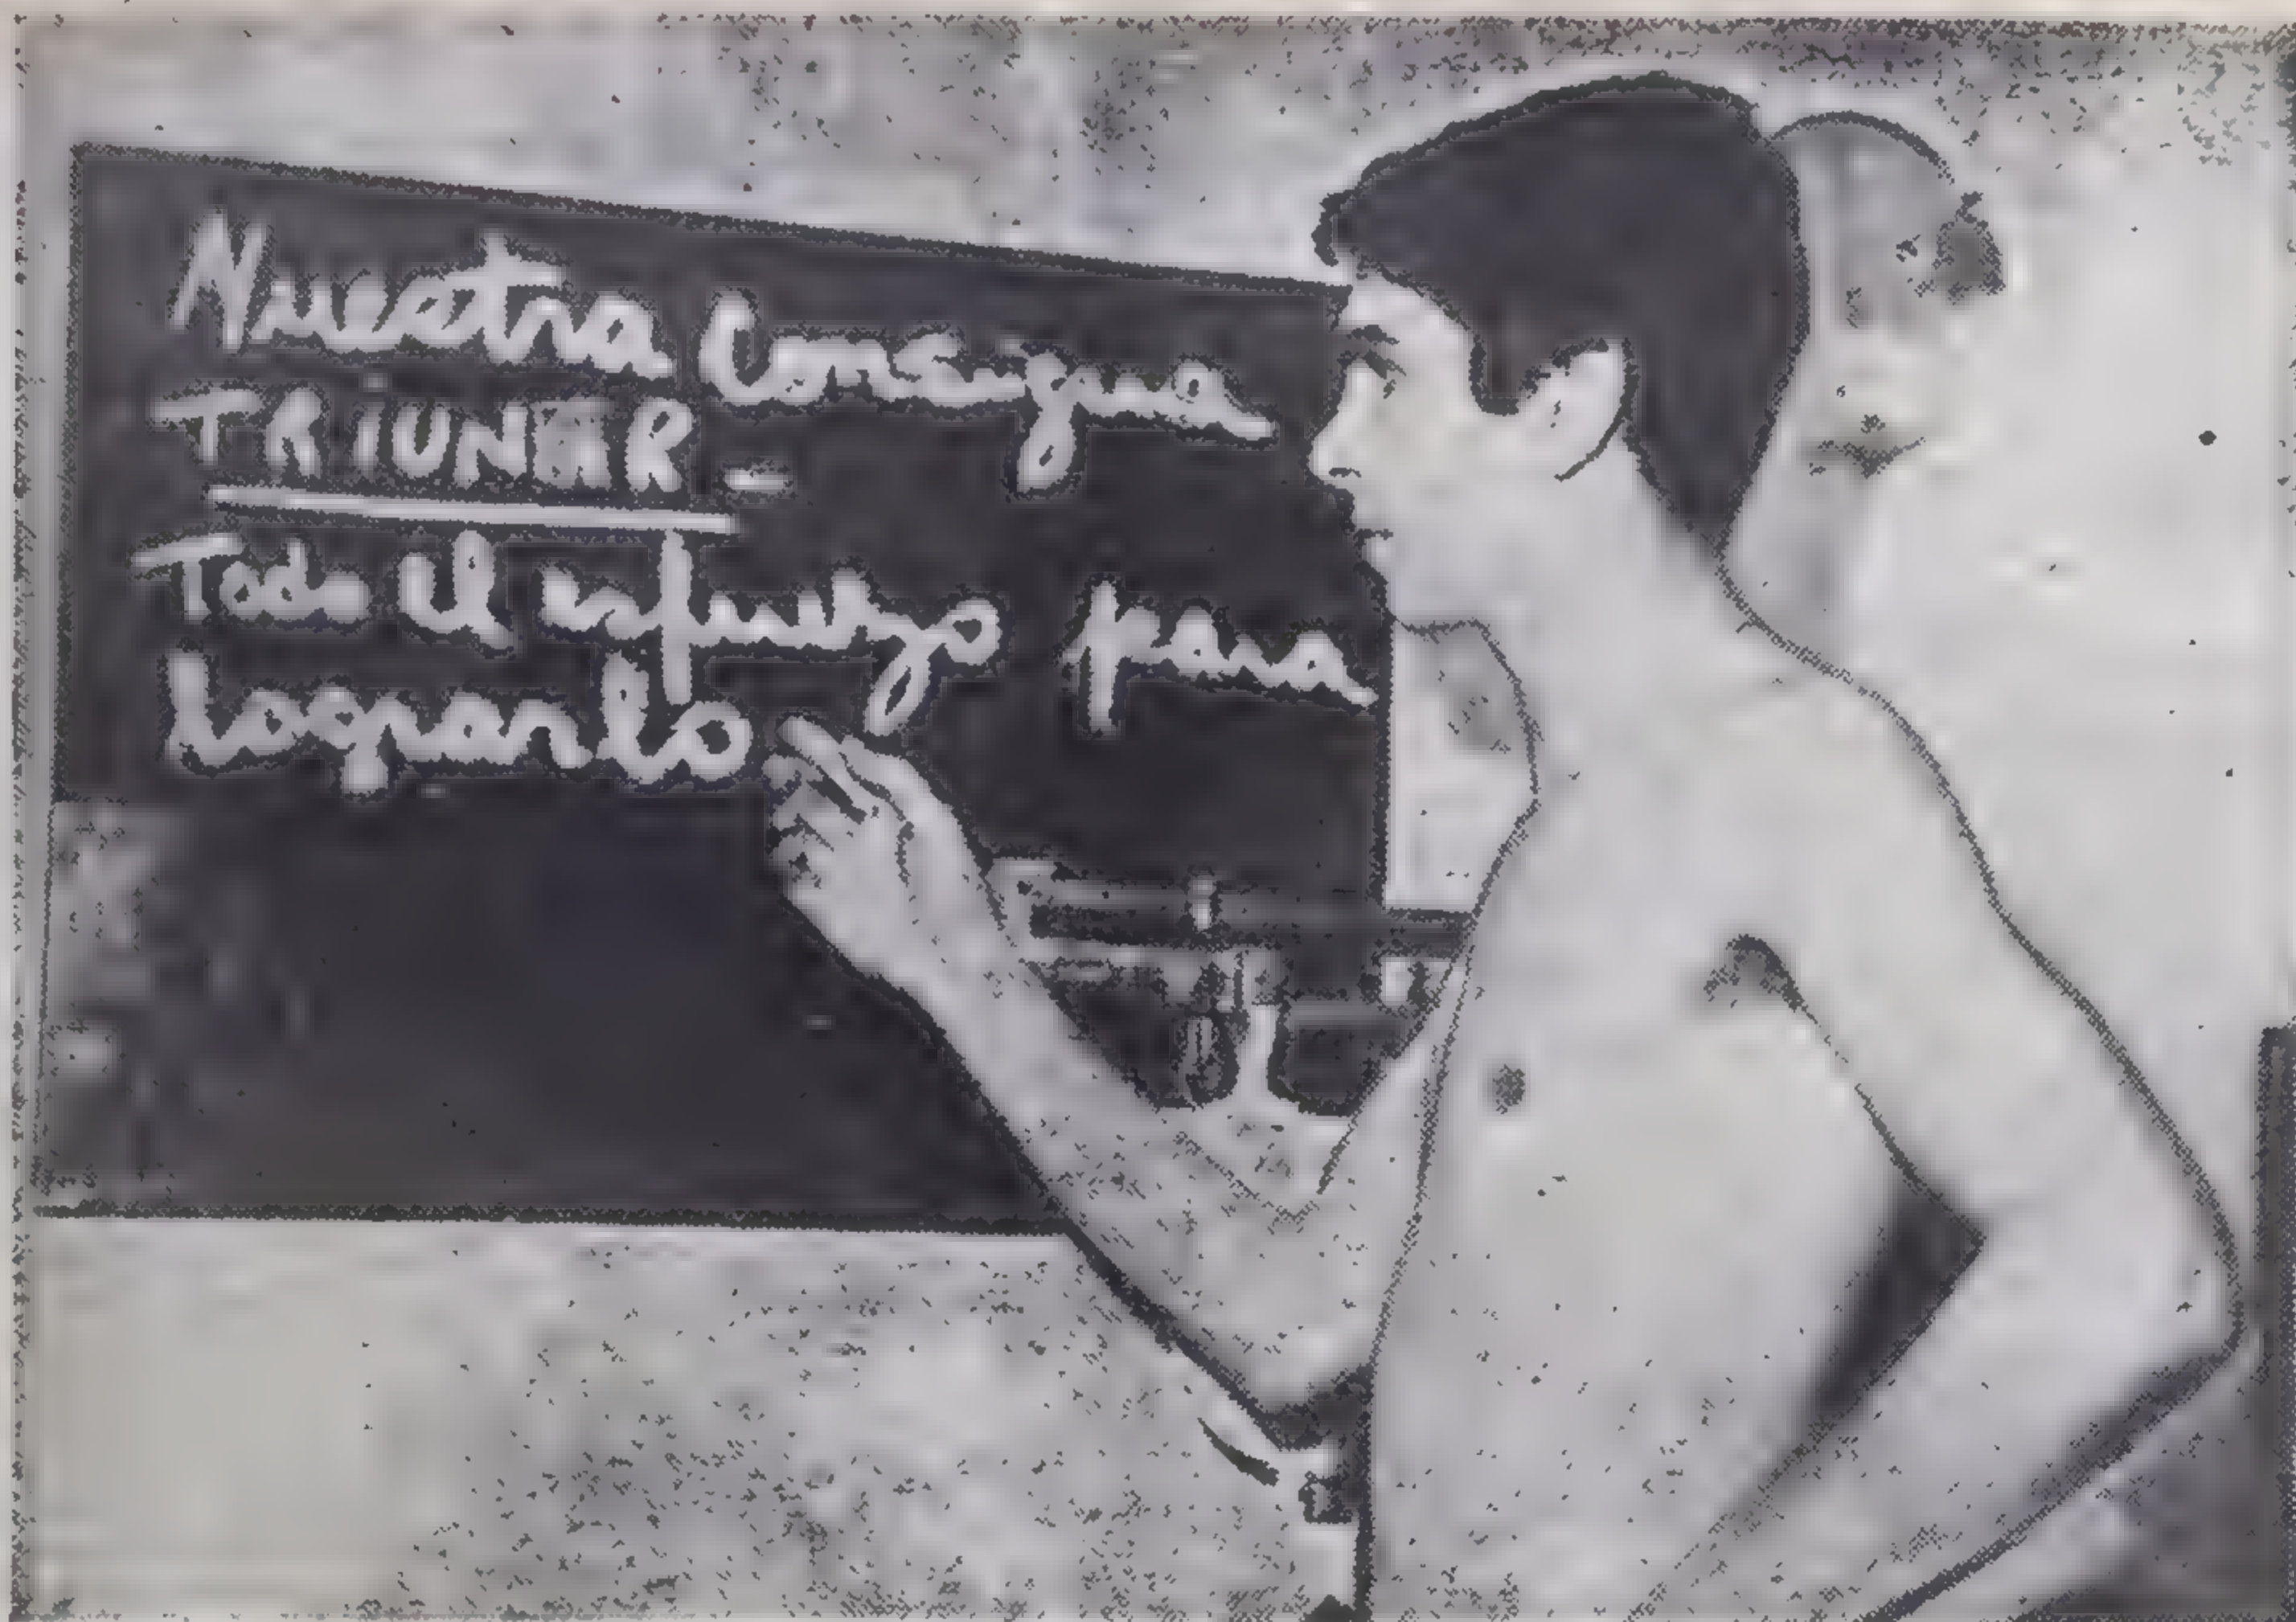 Nuestra Consigna
TRIUNFAR -
Todo el esfuerzo para
Lograrlo